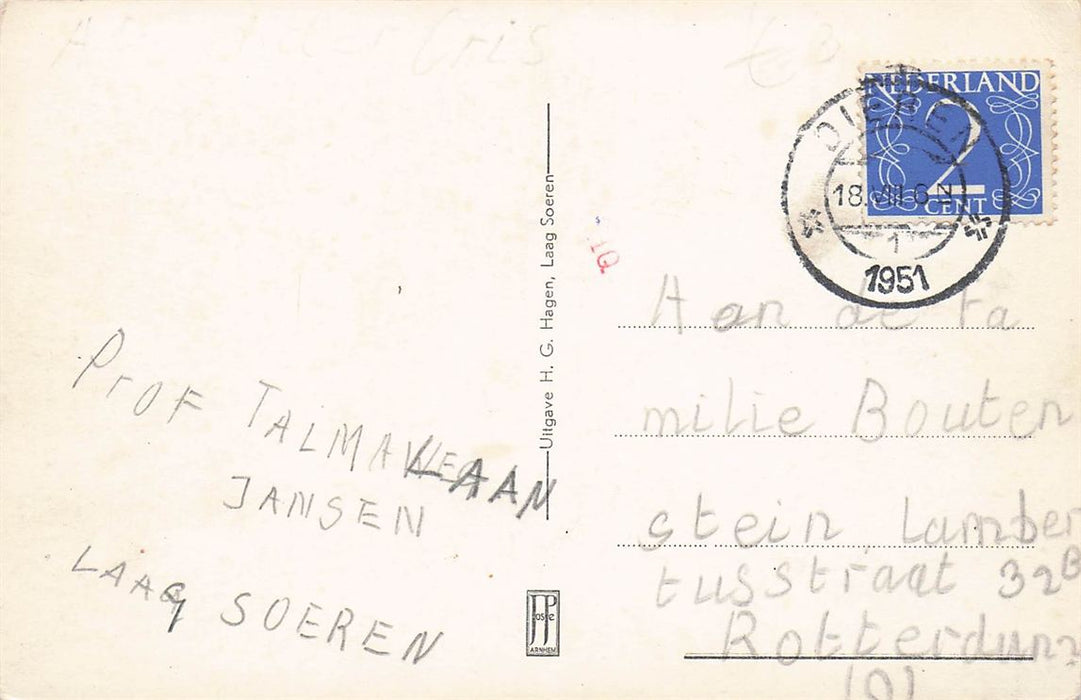 Cris
NEDERLAND
2
CENT
DIEREN
18.VIII.6 N
1
1951
Uitgave H. G. Hagen, Laag Soeren
Aan de fa
milie Bouten
stein Lamber
tusstraat 32B
Rotterdam
(O)
Prof TALMALAAN
JANSEN
LAAG SOEREN
JosPé
ARNHEM